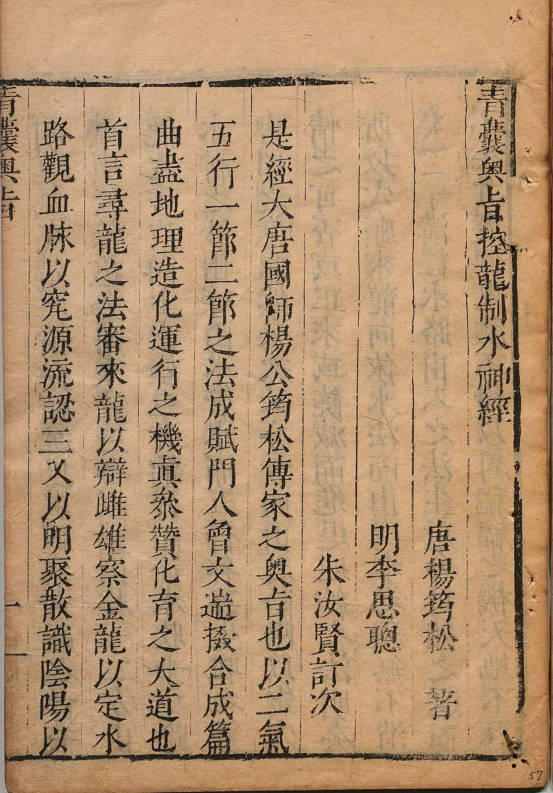 青囊奧旨控龍制水神經
唐楊筠松之著
明李思聰
朱汝賢訂次
是經大唐國師楊公筠松傳家之奧旨也以二氣
五行一節二節之法成賦門人曾文遄掇合成篇
曲盡地理造化運行之機眞叅贊化育之大道也
首言尋龍之法審來龍以辯雌雄察金龍以定水
路觀血脉以究源流認三叉以明聚散識陰陽以
青囊奧旨
一
57